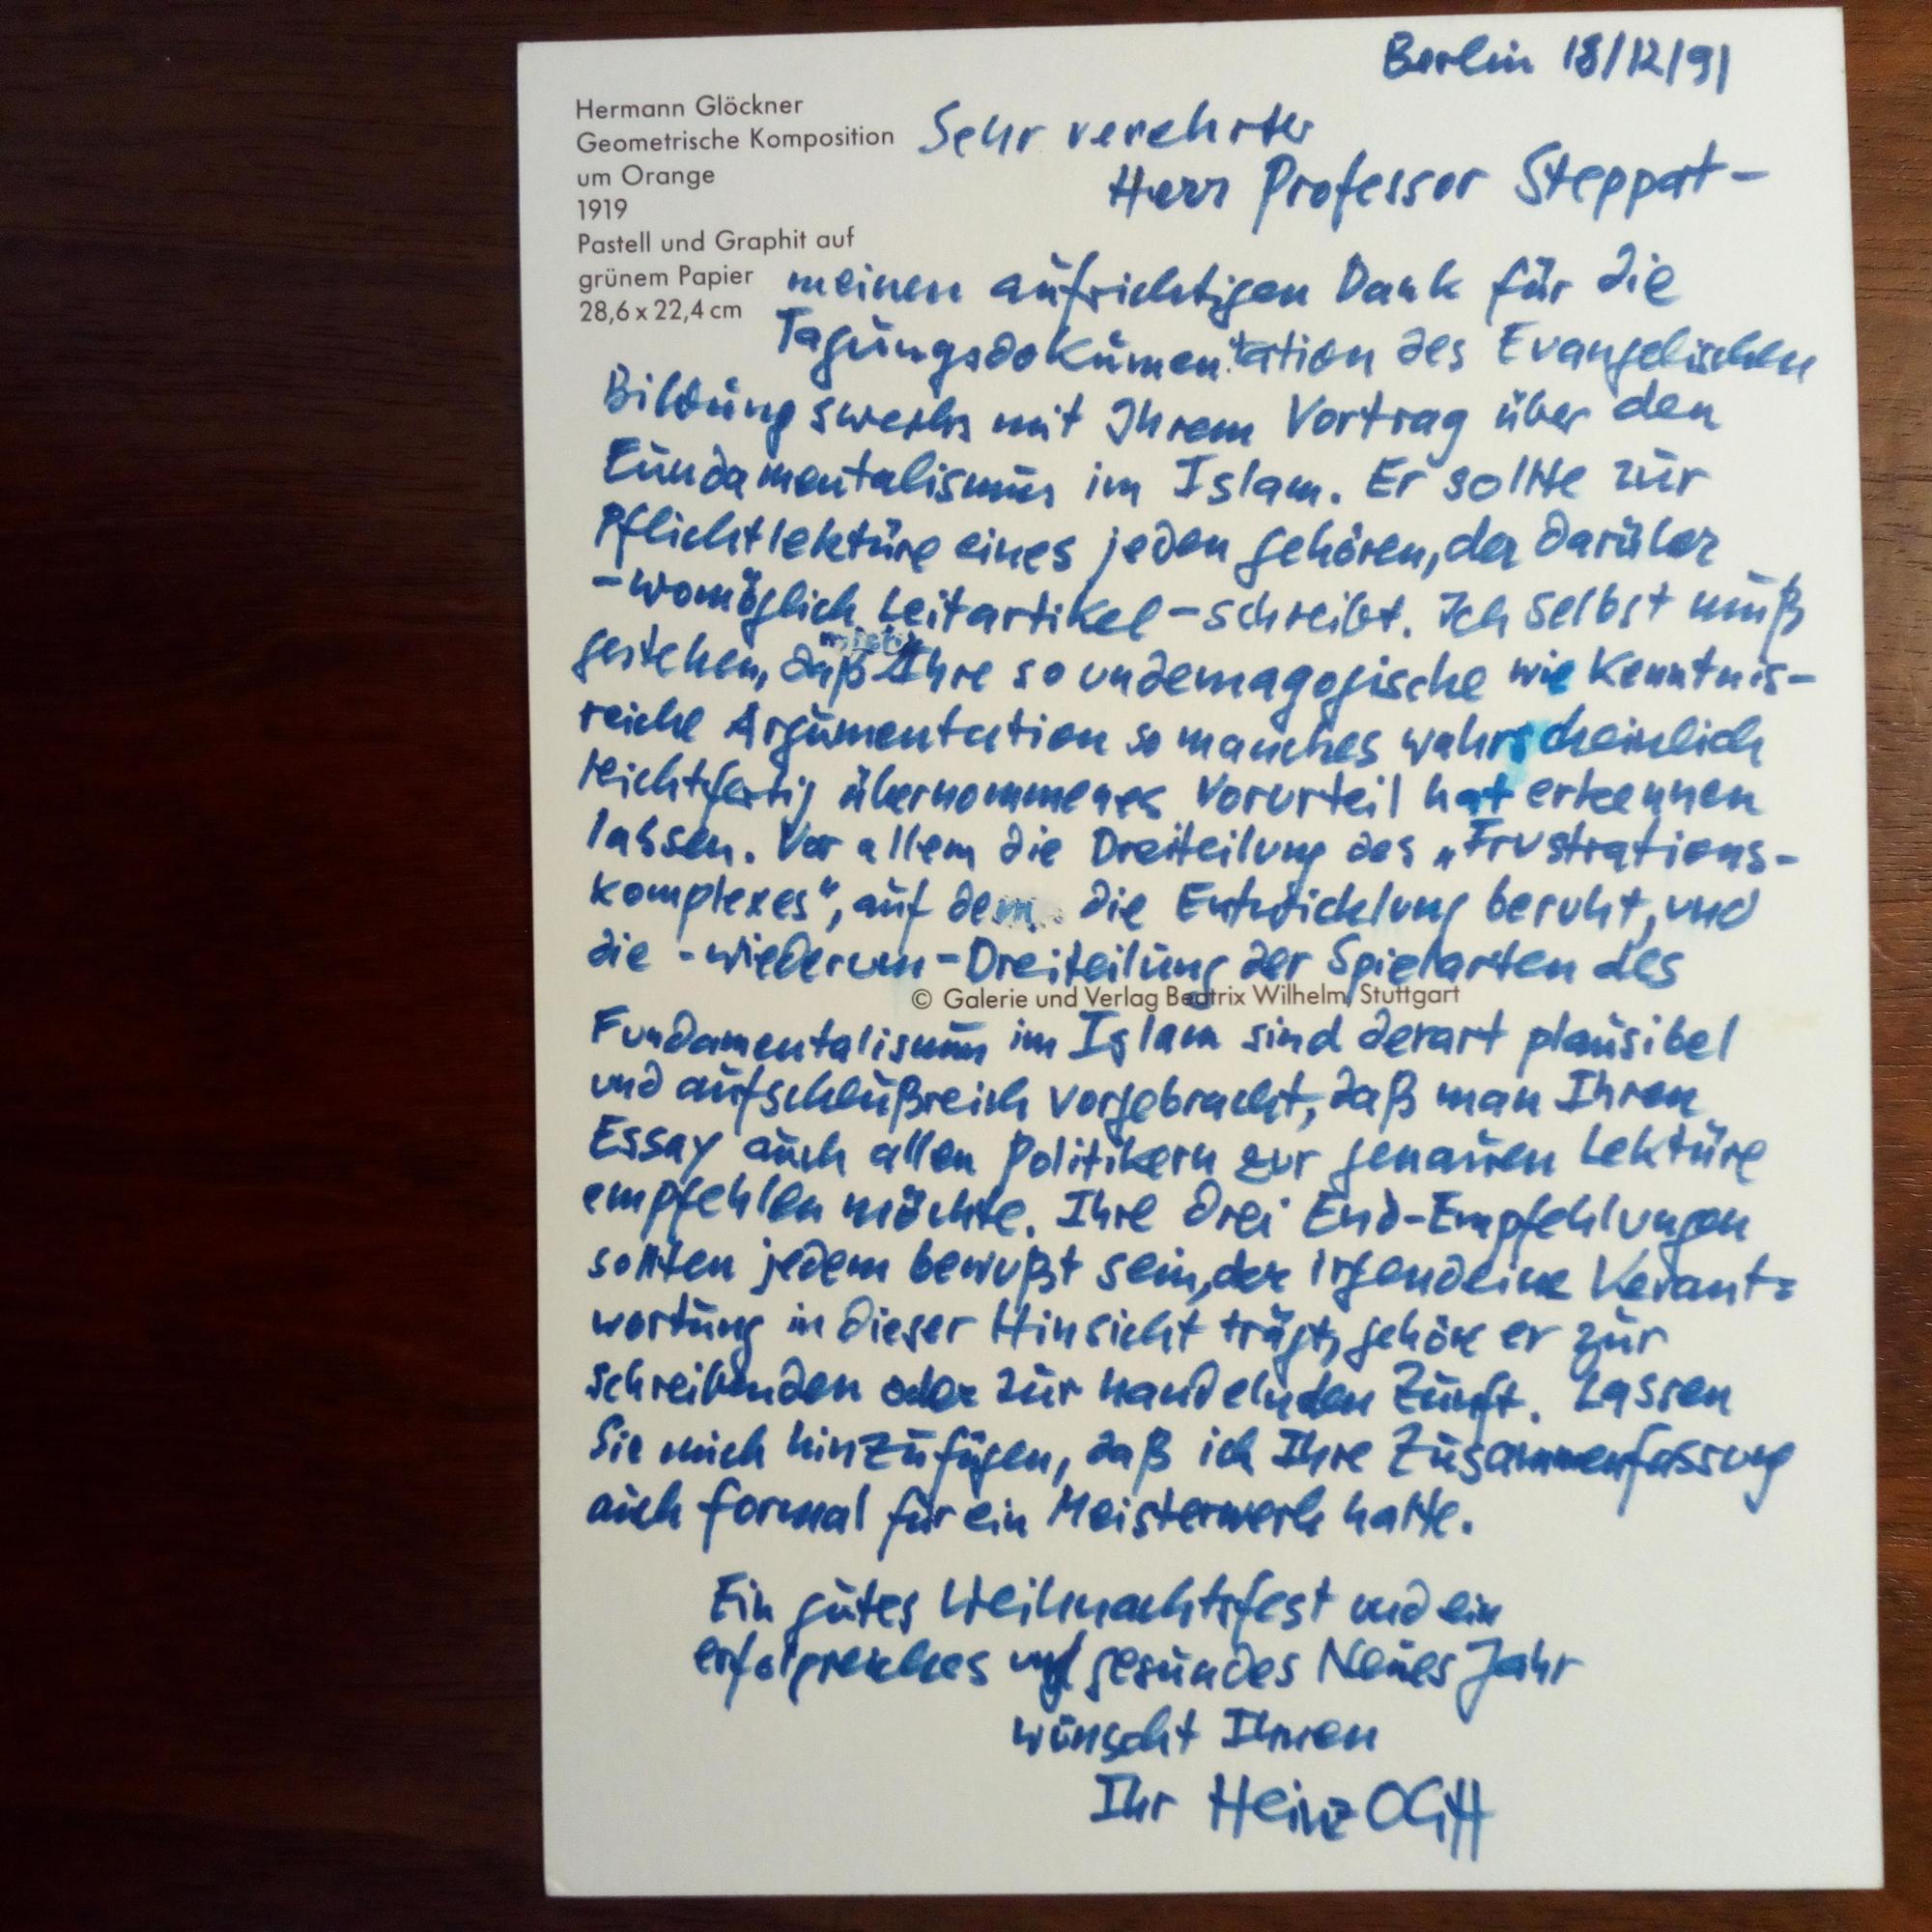 Berlin 18/12/91
Hermann Glöckner
Geometrische Komposition
um Orange
1919
Pastell und Graphit auf
grünem Papier
28,6 x 22,4 cm
Sehr verehrter
Herr Professor Steppat –
meinen aufrichtigen Dank für die
Tagungsdokumentation des Evangelischen
Bildungswerks mit Ihrem Vortrag über den
Fundamentalismus im Islam. Er sollte zur
Pflichtlektüre eines jeden gehören, der darüber
– womöglich Leitartikel – schreibt. Ich selbst muß
gestehen, daß Ihre so undemagogische wie kenntnis-
reiche Argumentation so manches wahrscheinlich
leichtfertig übernommenes Vorurteil hat erkennen
lassen. Vor allem die Dreiteilung des „Frustrations-
komplexes“, auf dem die Entwicklung beruht, und
die - wiederum - Dreiteilung der Spielarten des
© Galerie und Verlag Beatrix Wilhelm, Stuttgart
Fundamentalismus im Islam sind derart plausibel
und aufschlußreich vorgebracht, daß man Ihren
Essay auch allen Politikern zur genauen Lektüre
empfehlen möchte. Ihre drei End-Empfehlungen
sollten jedem bewußt sein, der irgendeine Verant=
wortung in dieser Hinsicht trägt, gehöre er zur
schreibenden oder zur handelnden Zunft. Lassen
Sie mich hinzufügen, daß ich Ihre Zusammenfassung
auch formal für ein Meisterwerk halte.
Ein gutes Weihnachtsfest und ein
erfolgreiches und gesundes Neues Jahr
wünscht Ihnen
Ihr Heinz Ohff